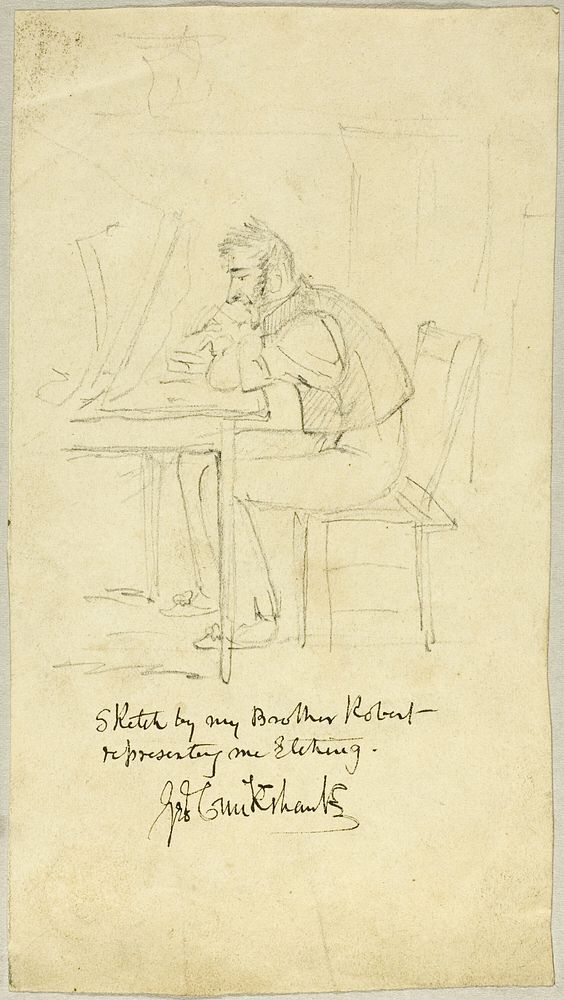 Sketch by my Brother Robert
representing me Etching.
Geo Cruikshank